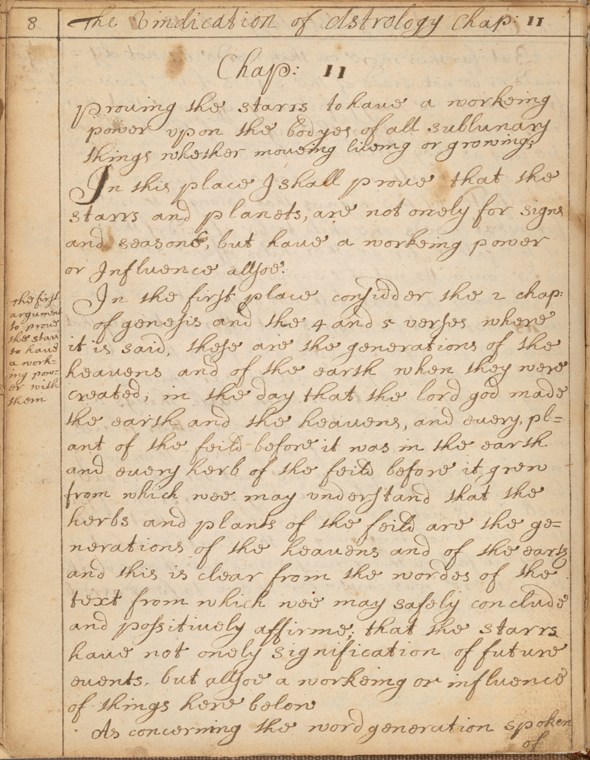 8 The Vindication of Astrology Chap: 11
Chap: 11
Proving the starrs to have a workeing
power vpon the bodyes of all sublunary
things whether moveing liveing or growing
In this place I shall prove that the
starrs and planets, are not onely for signs
and seasons, but have a workeing power
or Influence allsoe.
In the first place considder the 2 chap:
of genesis and the 4 and 5 verses where
it is said, these are the generations of the
heavens and of the earth when they were
created, in the day that the lord god made
the earth and the heavens, and every pl=
ant of the feild before it was in the earth
and every herb of the feild before it grew
from which wee may vnderstand that the
herbs and plants of the feild are the ge=
nerations of the heavens and of the earth
and this is clear from the wordes of the
text from which wee may safely conclude
and possitively affirme; that the starrs
have not onely signification of future
events, but allsoe a workeing or influence
of things here below
As concerning the word generation spoken
of
the first
argument
to prove
the starrs
to have
a work-
ing pow-
er with
them